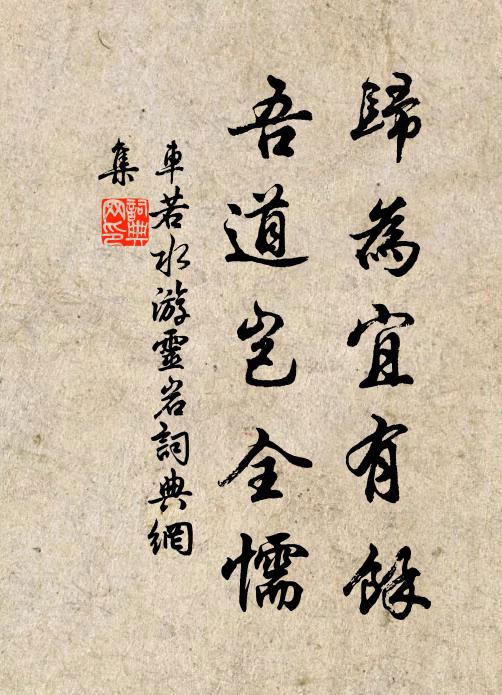 歸為宜有餘
吾道豈全懦
車若水游靈岩詞典網
集
詞典網印